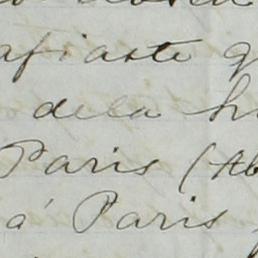 afiaste q
de la h
Paris (Ab
á Paris